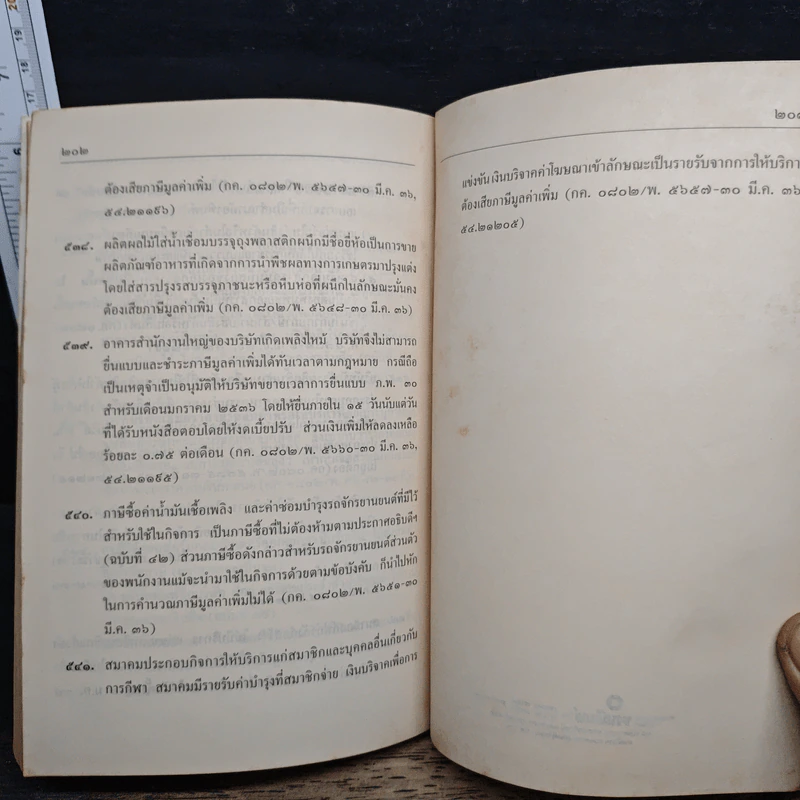 ๒๐๒
ต้องเสียภาษีมูลค่าเพิ่ม (กค. ๐๘๐๒/พ. ๕๖๔๗-๓๐ มี.ค. ๓๖,
๕๔.๒๑๑๙๖)
๕๓๘. ผลิตผลไม้ใส่น้ำเชื่อมบรรจุถุงพลาสติกผนึกมีชื่อยี่ห้อเป็นการขาย
ผลิตภัณฑ์อาหารที่เกิดจากการนำพืชผลทางการเกษตรมาปรุงแต่ง
โดยใส่สารปรุงรสบรรจุภาชนะหรือหีบห่อที่ผนึกในลักษณะมั่นคง
ต้องเสียภาษีมูลค่าเพิ่ม (กค. ๐๘๐๒/พ. ๕๖๔๘-๓๐ มี.ค. ๓๖)
๕๓๙. อาคารสำนักงานใหญ่ของบริษัทเกิดเพลิงไหม้ บริษัทจึงไม่สามารถ
ยื่นแบบและชำระภาษีมูลค่าเพิ่มได้ทันเวลาตามกฎหมาย กรณีถือ
เป็นเหตุจำเป็นอนุมัติให้บริษัทขยายเวลาการยื่นแบบ ภ.พ. ๓๐
สำหรับเดือนมกราคม ๒๕๓๖ โดยให้ยื่นภายใน ๑๕ วันนับแต่วัน
ที่ได้รับหนังสือตอบโดยให้งดเบี้ยปรับ ส่วนเงินเพิ่มให้ลดลงเหลือ
ร้อยละ ๐.๗๕ ต่อเดือน (กค. ๐๘๐๒/พ. ๕๖๖๐-๓๐ มี.ค. ๓๖,
๕๔.๒๑๑๙๕)
๕๔๐. ภาษีซื้อค่าน้ำมันเชื้อเพลิง และค่าซ่อมบำรุงรถจักรยานยนต์ที่มีไว้
สำหรับใช้ในกิจการ เป็นภาษีซื้อที่ไม่ต้องห้ามตามประกาศอธิบดีฯ
(ฉบับที่ ๔๒) ส่วนภาษีซื้อดังกล่าวสำหรับรถจักรยานยนต์ส่วนตัว
ของพนักงานแม้จะนำมาใช้ในกิจการด้วยตามข้อบังคับ ก็นำไปหัก
ในการคำนวณภาษีมูลค่าเพิ่มไม่ได้ (กค. ๐๘๐๒/พ. ๕๖๕๑-๓๐
มี.ค. ๓๖)
๕๔๑. สมาคมประกอบกิจการให้บริการแก่สมาชิกและบุคคลอื่นเกี่ยวกับ
การกีฬา สมาคมมีรายรับค่าบำรุงที่สมาชิกจ่าย เงินบริจาคเพื่อการ
แข่งขัน เงินบริจาคค่าโฆษณาเข้าลักษณะเป็นรายรับจากการให้บริกา
ต้องเสียภาษีมูลค่าเพิ่ม (กค. ๐๘๐๒/พ. ๕๖๕๗-๓๐ มี.ค. ๓๖
๕๔.๒๑๒๐๕)